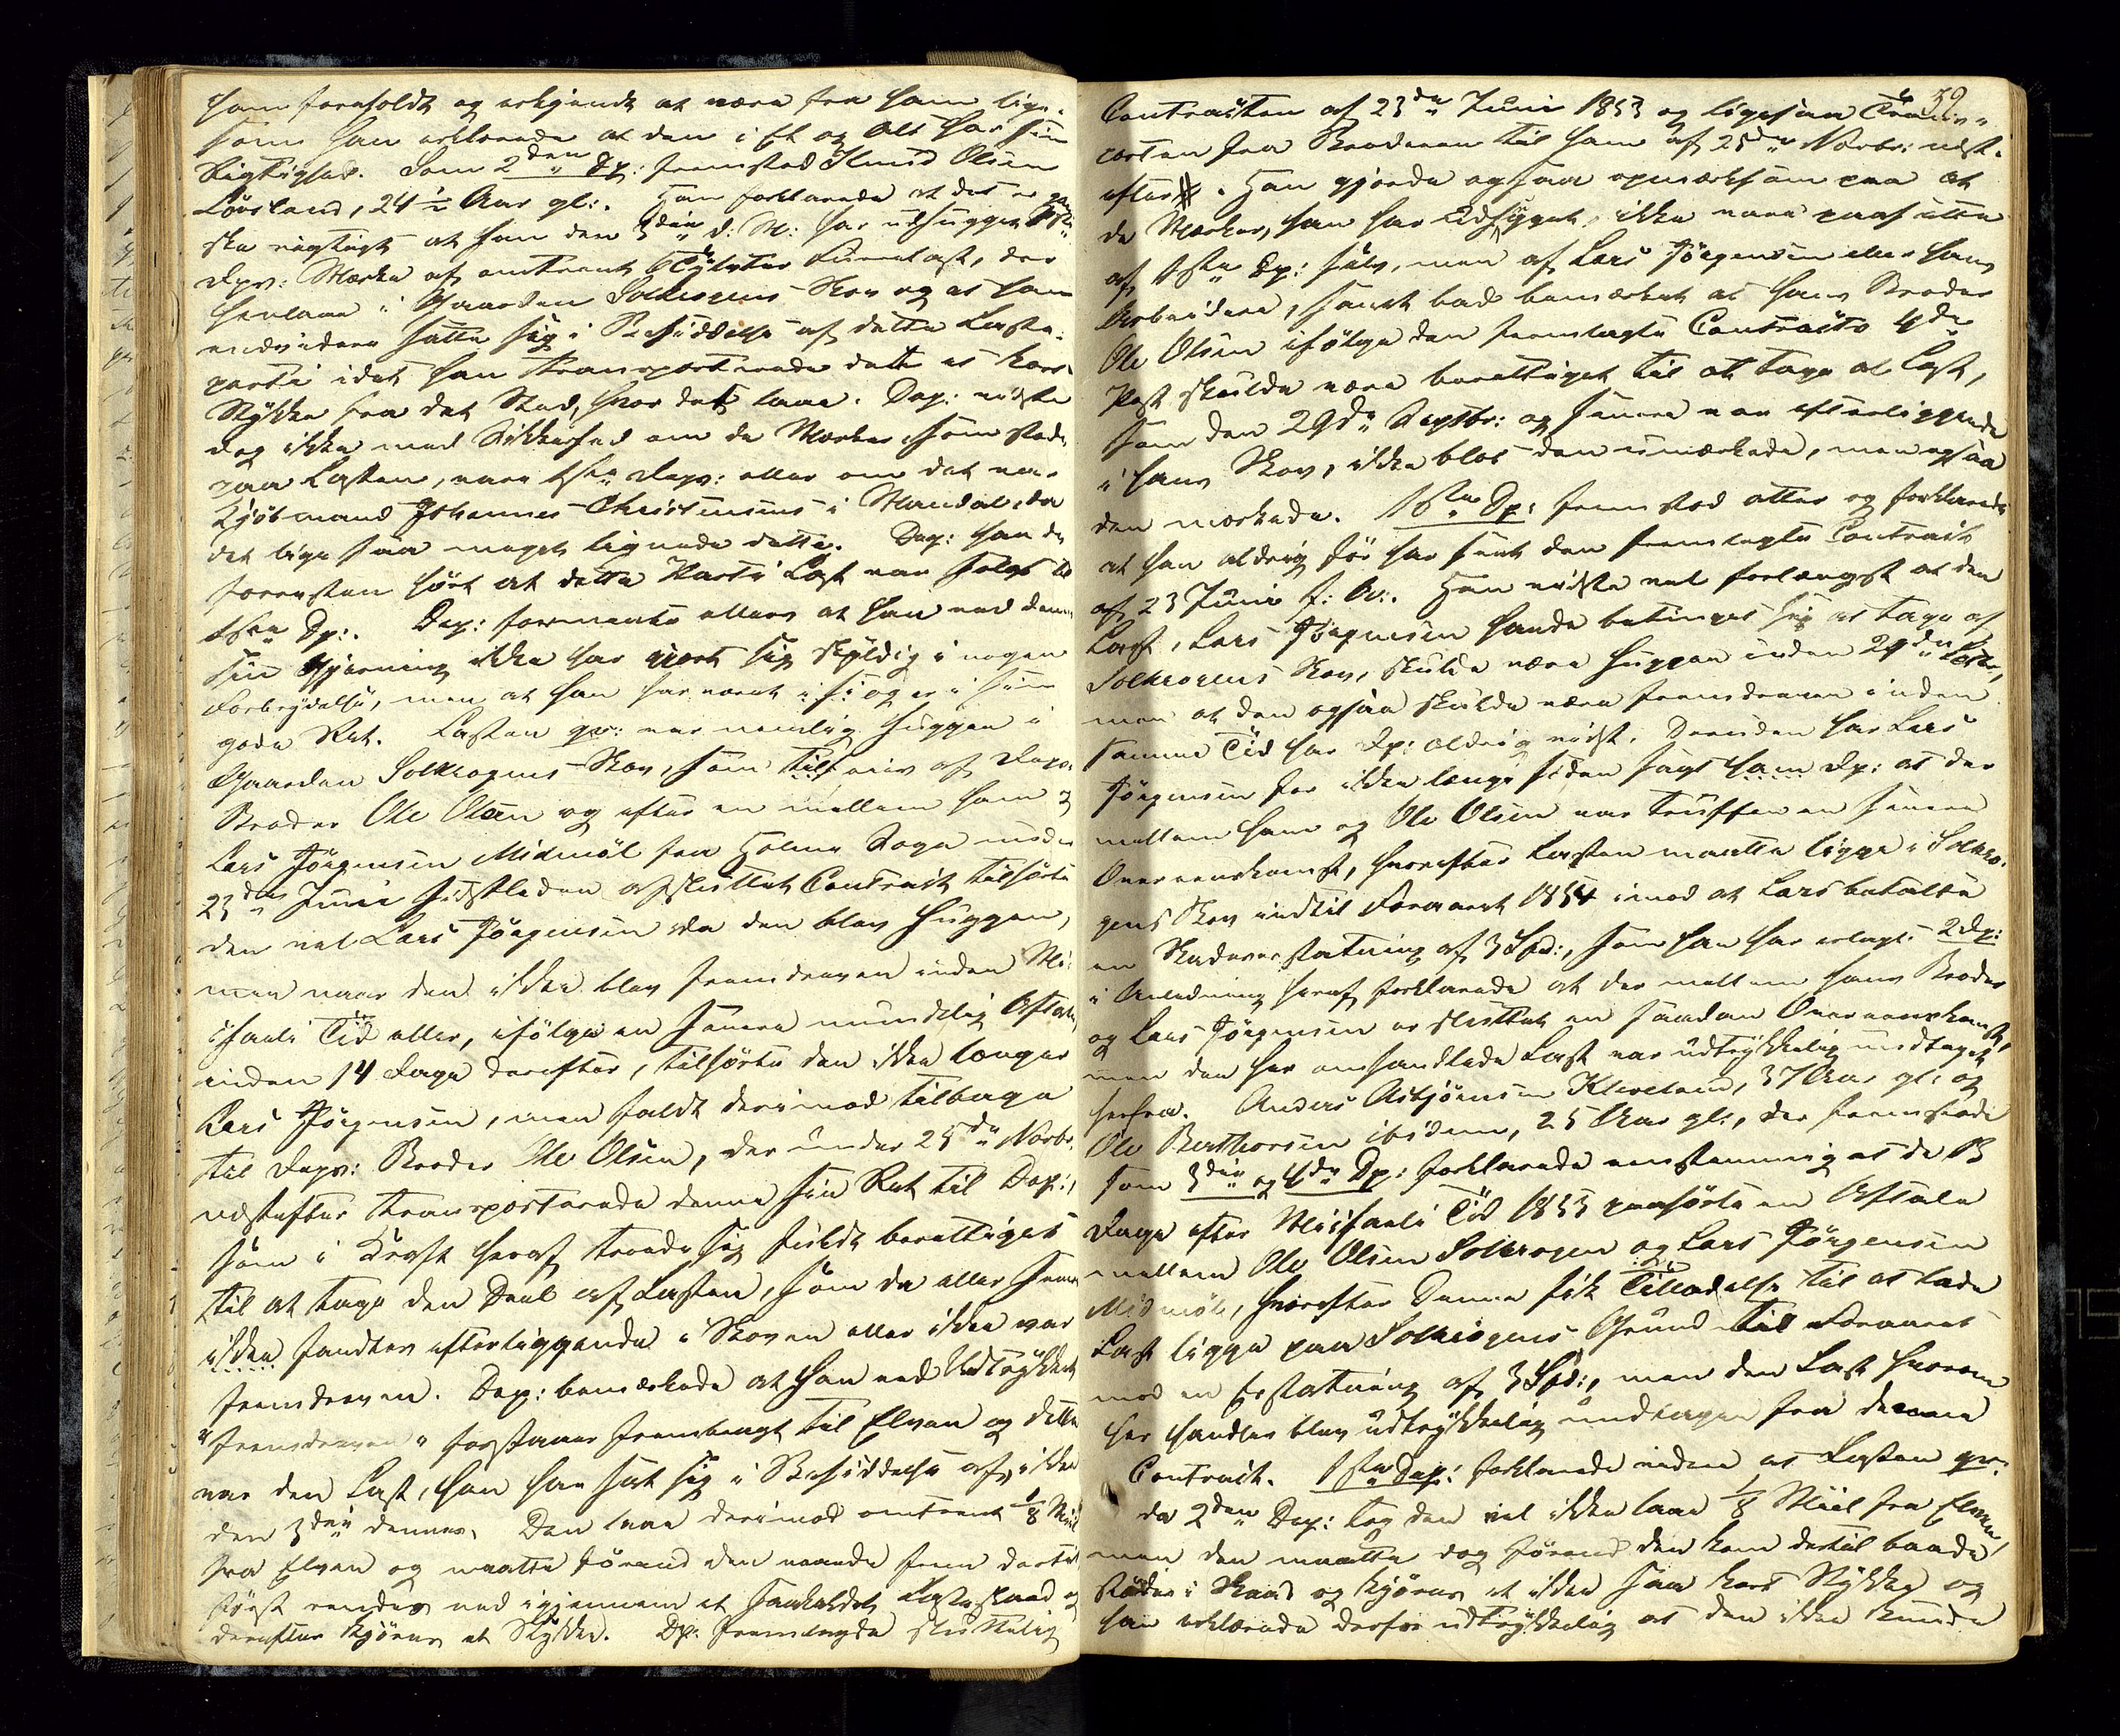 ham foreholdt og erkjendt at være fra ham lige-
som han erklærede at den i Et og Alt har sin
Rigtighed. Som 2den Dp: fremstod Knud Olsen
Løvsland, 24 ½ Aar gl:. Han forklarede at det er gan-
ske rigtigt at han den 3die d: M: har udhugget 1ste
Dpv: Mærke af omtrent 6 Tylvter Furulast, der
henlaae i Gaarden Solkrogens Skov og at han
endvidere satte sig i Besiddelse af dette Laste-
parti idet han transporterede dette et kort
Stykke fra det Sted, hvor det laae. Dep: vidste
dog ikke med Sikkerhed om de Mærker som stode
paa Lasten, vare 1ste Depv: eller om det var
Kjøbmand Johannes Christensens i Mandal, da
det lige saa meget lignede dette. Dep: havde
forresten hørt at dette Parti Last var solgt til
1ste Dp:. Dep: formente ellers at han ved denne
sin Gjerning ikke har gjort sig skyldig i nogen
Forbrydelse, men at han har været i sig og er i sin
gode Ret. Lasten qv: var nemlig huggen i
Gaarden Solkrogens Skov, som tilhører af Depv.
Broder Ole Olsen og efter en mellem ham og
Lars Jørgensen Midmøl fra Holme Sogn under
23de Juni sidstleden afsluttet Contract tilhørte
den vel Lars Jørgensen da den blev huggen,
men naar den ikke blev fremdreven inden Mi-
chaeli Tid eller, ifølge en senere mundtlig Aftale,
inden 14 Dage derefter, tilhørte den ikke længer
Lars Jørgensen, men faldt derimod tilbage
til Depv: Broder Ole Olsen, der under 25de Novbr.
næstefter transporterede denne sin Ret til Dep:,
som i Kraft heraf troede sig fuldt berettiget
til at tage den Deel af Lasten, som da eller senere
ikke fandtes efterliggende i Skoven eller ikke var
fremdreven. Dep: bemærkede at han ved Udtrykket
"fremdreven" forstaaer frembragt til Elven og dette
var den Last, han har sat sig i Besiddelse af, ikke
den 3die dennes. Den laae derimod omtrent ⅛ Miil
fra Elven og maatte førend den naaede frem dertil
først rendes ned igjennem et saakaldet Lasteskaad og
derefter kjøres et Stykke. Dp: fremlagde sluttelig
39
Contracten af 23de Juni 1853 og ligesaa Trans-
porten fra Broderen til ham af 25de Novbr. næst-
efter. Han gjorde ogsaa opmærksom paa at
de Mærker, han har Udhugget, ikke vare paasatte
af 1ste Dp: selv, men af Lars Jørgensen eller hans
Arbeidere, samt bad bemærket at hans Broder
Ole Olsen ifølge den fremlagte Contracts 4de
Post skulde være berettiget til at tage al Last,
som den 29de Septbr: og senere var efterliggende
i hans Skov, ikke blot den umærkede, men ogsaa
den mærkede. 1ste Dp: fremstod atter og forklarede
at han aldrig før har seet den fremlagte Contract
af 23 Juni f: A:. Han vidste vel forlængst at den
Last, Lars Jørgensen havde betinget sig at tage af
Solkrogens Skov, skulde være huggen inden 29de Septbr,
men at den ogsaa skulde være fremdreven inden
samme Tid har Dp: aldrig vidst. Desuden har Lars
Jørgensen for ikke længe siden sagt ham Dp: at der
mellem ham og Ole Olsen var truffen en senere
Overeenskomst, hvorefter Lasten maatte ligge i Solkro-
gens Skov indtil Foraaret 1854 imod at Lars betalte
en Skadeserstatning af 3 Spd:, som han har erlagt. 2 Dp:
i Anledning heraf forklarede at der mellem hans Broder
og Lars Jørgensen er sluttet en saadan Overeenskomst,
men den her omhandlede Last var udtrykkelig undtaget
herfra. Anders Asbjørnsen Kleveland, 37 Aar gl: og
Ole Berthorsen ibidem, 25 Aar gl:, der fremstode
som 3die og 4de Dp: forklarede eenstemmig at de 13
Dage efter Michaeli Tid 1853 paahørte en Aftale
mellem Ole Olsen Solkrogen og Lars Jørgensen
Midmøl, hvorefter Denne fik Tilladelse til at lade
Last ligge paa Solkrogens Grund til Foraaret
mod en Erstatning af 3 Spd:, men den Last hvorom
her handles blev udtrykkelig undtagen fra denne
Contract. 1ste Dep: forklarede videre at Lasten qv:
da 2den Dep: tog den vel ikke laae ⅛ Miil fra Elven,
men den maatte dog førend den kom dertil baade
stødes i Skaad og kjøres et ikke saa kort Stykke og
han erklærede derfor udtrykkelig at den ikke kunde